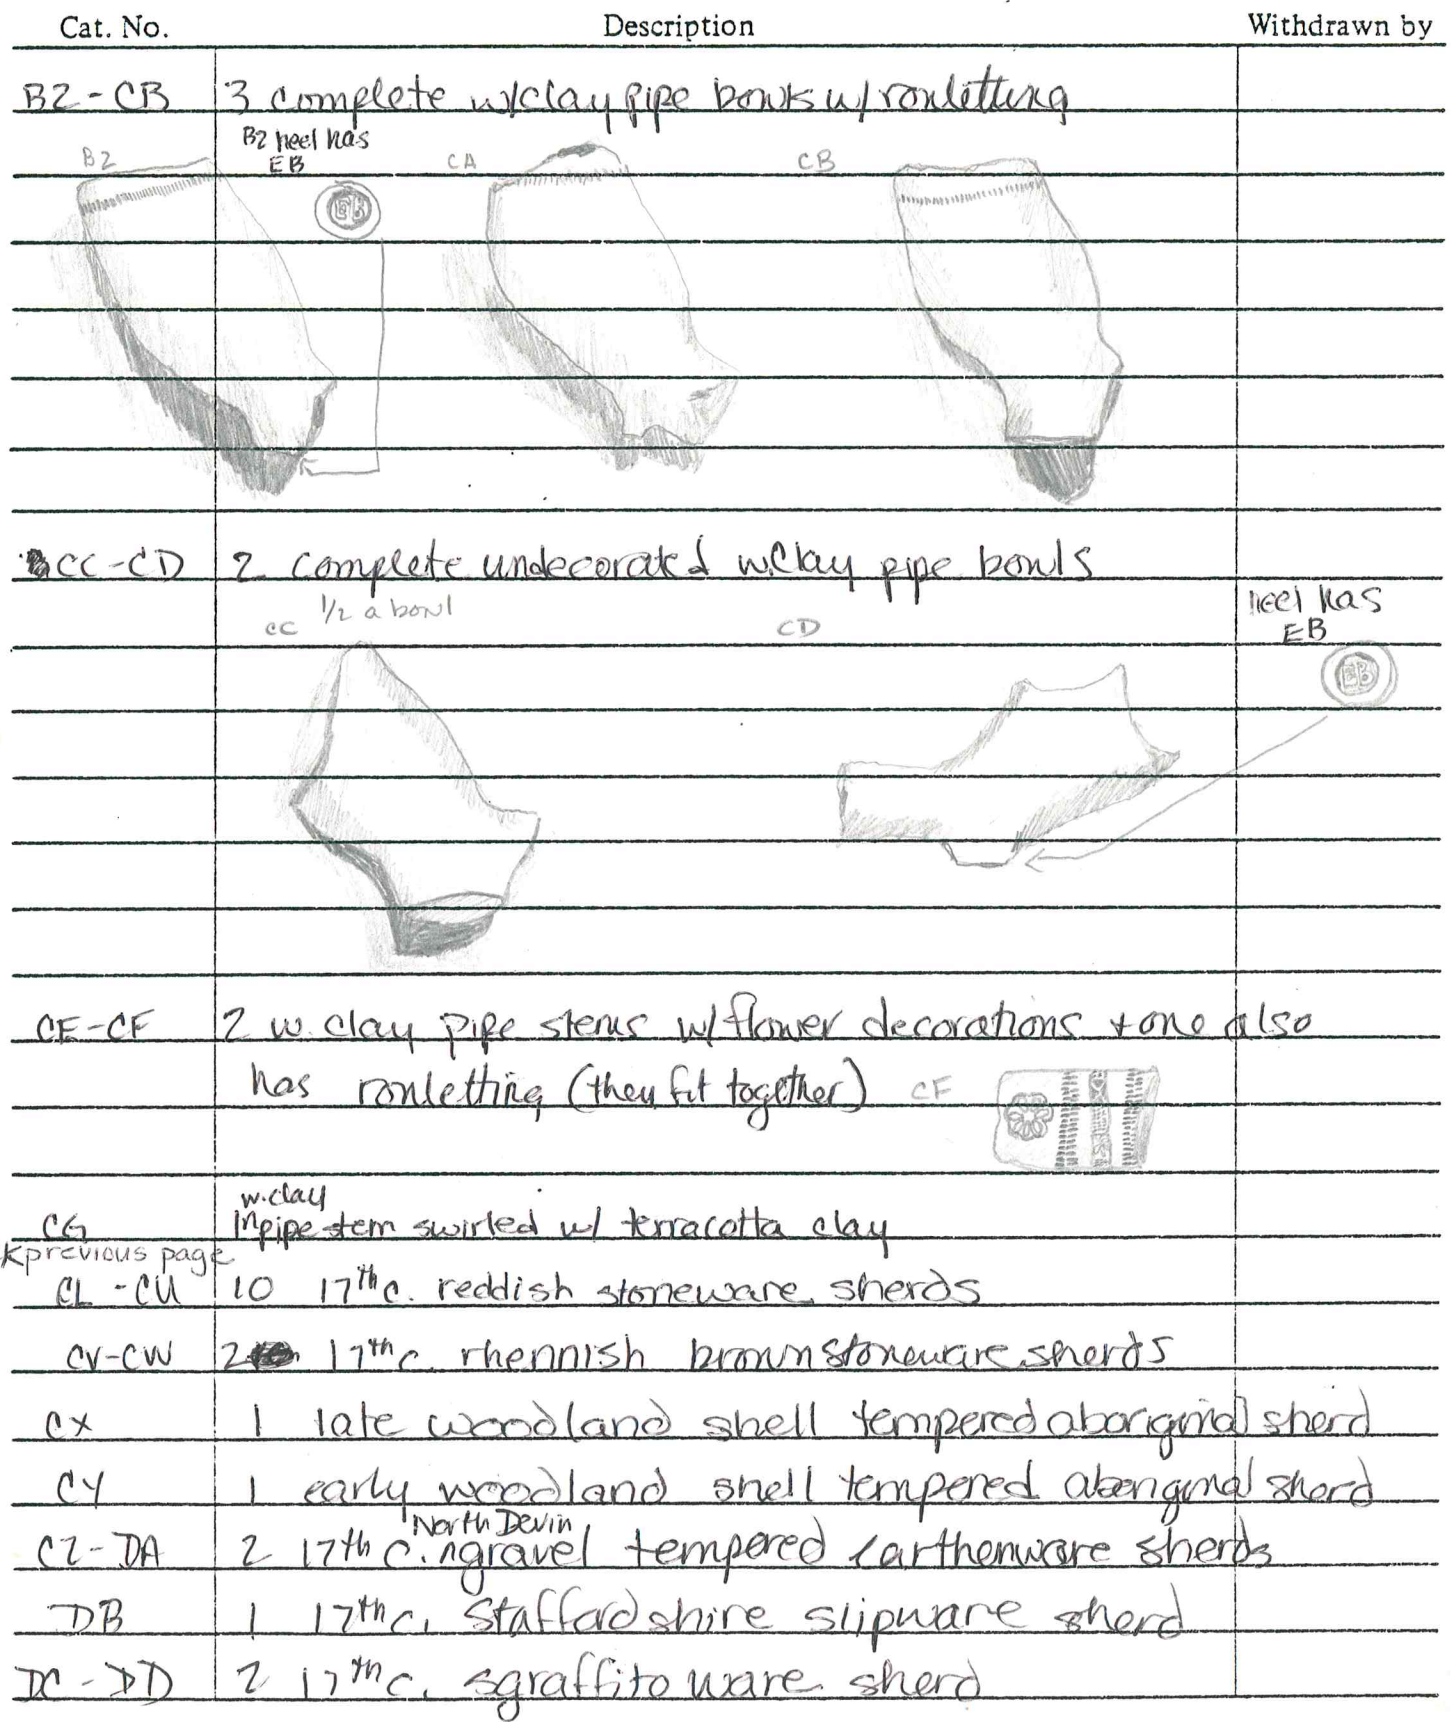 Cat. No. Description Withdrawn by
BZ-CB 3 complete w/clay pipe bowls w/ rouletting
BZ heel has
EB
BZ CA CB
EB
CC-CD 2 complete undecorated w.clay pipe bowls
1/2 a bowl
CC CD
heel has
EB
EB
CE-CF 2 w. clay pipe stems w/flower decorations + one also
has rouletting (they fit together) CF
w.clay
CG 1 pipe stem swirled w/ terracotta clay
previous page
CL-CU 10 17th c. reddish stoneware sherds
CV-CW 2 17th c. rhennish brown stoneware sherds
CX 1 late woodland shell tempered aboriginal sherd
CY 1 early woodland shell tempered aboriginal sherd
North Devin
CZ-DA 2 17th c. gravel tempered earthenware sherds
DB 1 17th c. Staffordshire slipware sherd
DC-DD 2 17th c. sgraffito ware sherd